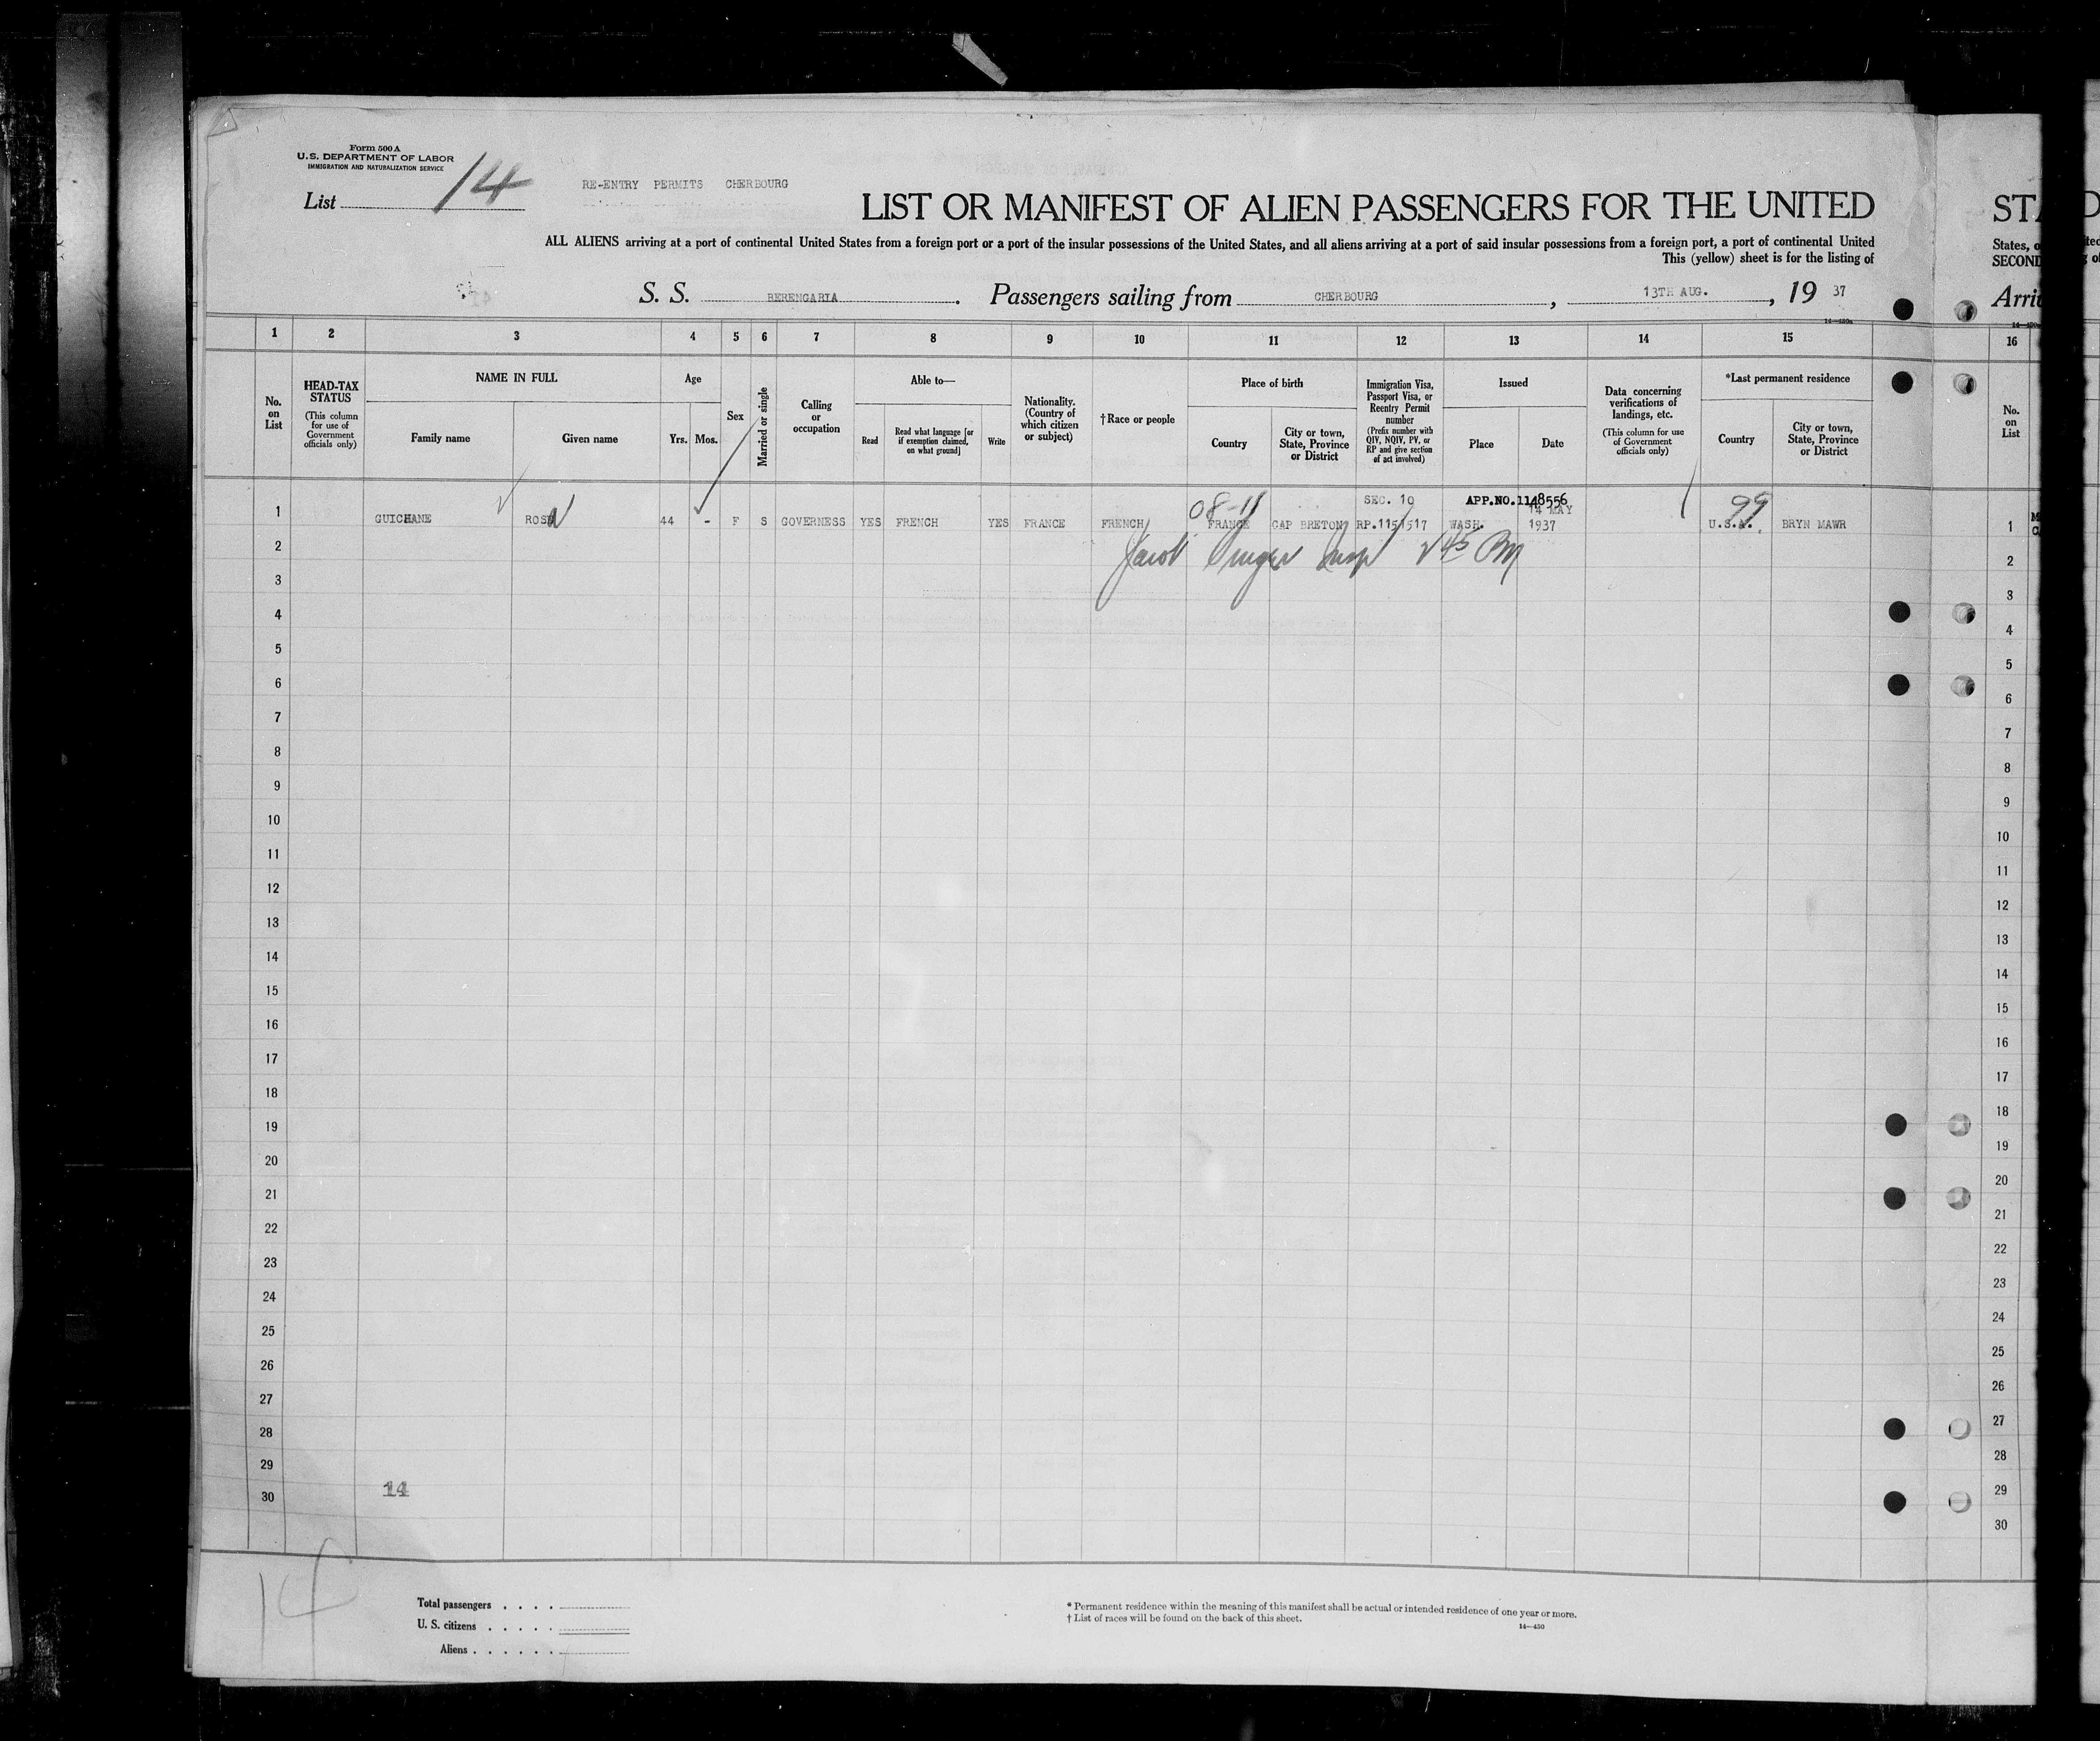 Form 500 A
U.S. DEPARTMENT OF LABOR
IMMIGRATION AND NATURALIZATION SERVICE
List 14
RE-ENTRY PERMITS CHERBOURG
LIST OR MANIFEST OF ALIEN PASSENGERS FOR THE UNITED
ALL ALIENS arriving at a port of continental United States from a foreign port or a port of the insular possessions of the United States, and all aliens arriving at a port of said insular possessions from a foreign port, a port of continental United
This (yellow) sheet is for the listing of
S. S. BERENGARIA. Passengers sailing from CHERBOURG, 13TH AUG., 19 37
States, o
SECOND
Arri
1 2 3 4 5 6 7 8 9 10 11 12 13 14 15 16
No. on List
HEAD-TAX STATUS
(This column for use of Government officials only)
NAME IN FULL
Family name
Given name
Age
Yrs. Mos.
Sex
Married or single
Calling or occupation
Able to—
Read
Read what language [or if exemption claimed, on what ground]
Write
Nationality. (Country of which citizen or subject)
†Race or people
Place of birth
Country
City or town, State, Province or District
Immigration Visa, Passport Visa, or Reentry Permit number
(Prefix number with QIV, NQIV, PV, or RP and give section of act involved)
Issued
Place
Date
Data concerning verifications of landings, etc.
(This column for use of Government officials only)
*Last permanent residence
Country
City or town, State, Province or District
No. on List
08-11
SEC. 10
APP.NO.1148556
14 MAY
99
1 GUICHANE 44 - F S GOVERNESS YES FRENCH YES FRANCE FRENCH FRANCE CAP BRETON RP.1151517 WASH. 1937 U.S.A. BRYN MAWR 1
2 2
3 3
4 4
5 5
6 6
7 7
8 8
9 9
10 10
11 11
12 12
13 13
14 14
15 15
16 16
17 17
18 18
19 19
20 20
21 21
22 22
23 23
24 24
25 25
26 26
27 27
28 28
29 29
30 30
14
14
Total passengers . . . .
U. S. citizens . . . . .
Aliens . . . . . .
* Permanent residence within the meaning of this manifest shall be actual or intended residence of one year or more.
† List of races will be found on the back of this sheet.
14—430